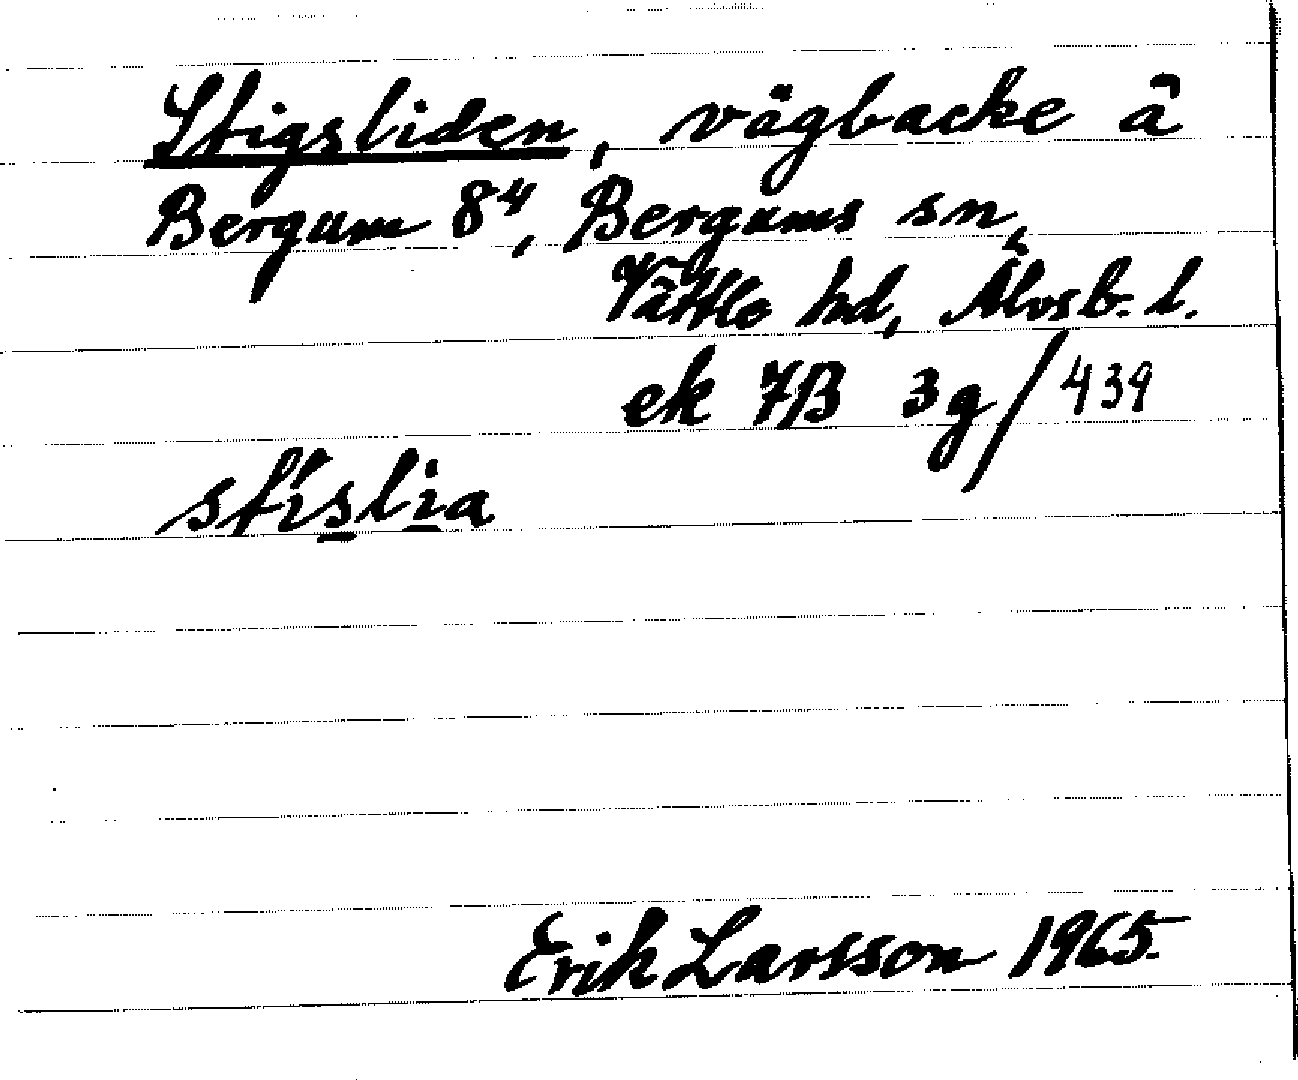 Stigsliden, vägbacke å
Bergum 8⁴, Bergums sn,
Vättle hd, Älvsb. l.
ek 7B 3g/439
stislia
Erik Larsson 1965.